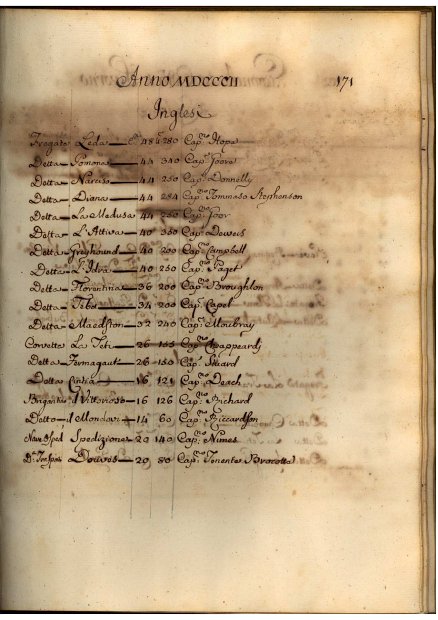 Anno MDCCCII 171
Inglesi
Fregata Leda 48 280 Cap.no Hope
Detta Pomona 44 340 Cap.no
Detta Narciso 44 250 Cap.no Donnelly
Detta Diana 44 284 Cap.no Tommaso Stephenson
Detta La Medusa 44 250 Cap.no Goor
Detta L'Attiva 40 350 Cap.no
Detta Greyhound 40 200 Cap.no Campbell
Detta L'Idra 40 250 Cap.no Paget
Detta Florentina 36 200 Cap.no Broughlon
Detta 34 200 Cap.no Capel
Detta Maedston 32 240 Cap.no Moubray
Corvetta La Teti 26 155 Cap.no
Detta Fermagaut 26 150 Cap.no
Detta Cintia 16 121 Cap.no
Brigantino il Vittorioso 16 126 Cap.no Richard
Detto il Mondavi 14 60 Cap.no Riccardson
Nave Sped Spedizione 20 140 Cap.no Nimes
20 80 Cap.no Tenente Bracotta